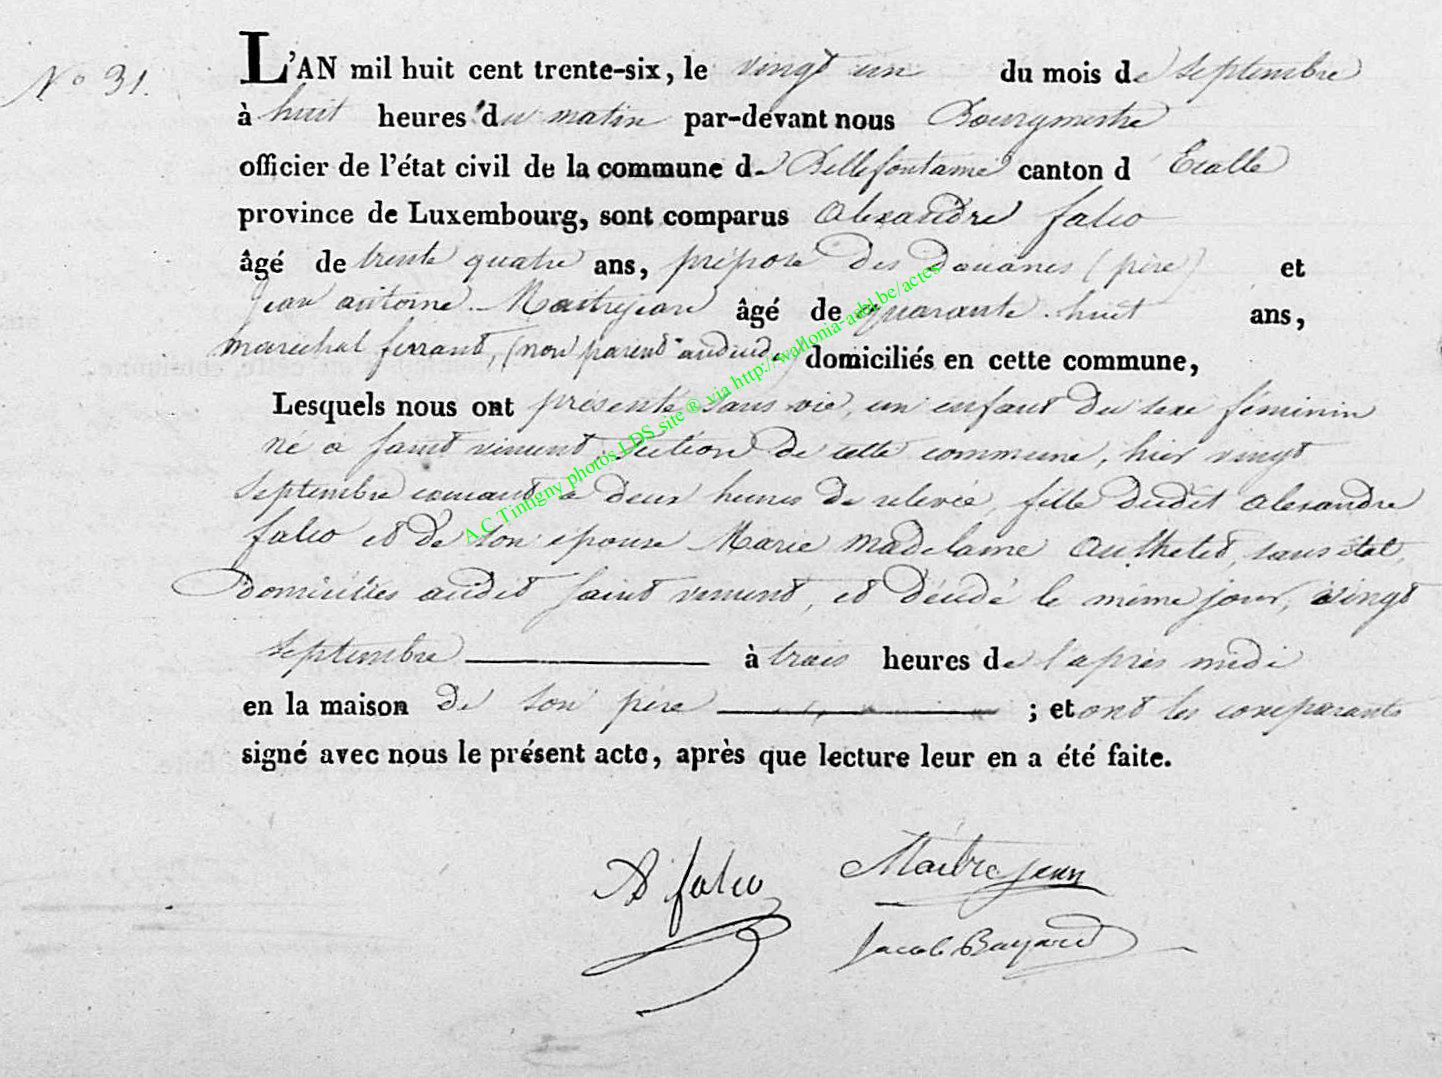 N° 31.
L'AN mil huit cent trente-six, le vingt un du mois de septembre
à huit heures du matin par-devant nous Bourgmestre
officier de l'état civil de la commune de Bellefontaine canton d Etalle
province de Luxembourg, sont comparus Alexandre falco
âgé de trente quatre ans, préposé des douanes (père) et
Jean antoine Maitrejean âgé de quarante huit ans,
marechal ferrant, (non parent au domiciliés en cette commune,
Lesquels nous ont présenté sans vie, un enfant du sexe féminin
né a saint vincent, section de cette commune, hier vingt
septembre courant a deux heures de relevée, fille dudit alexandre
falco et de son épouse Marie Madelaine sans état,
domiciliés audit saint vincent, et décédé le même jour, vingt
septembre à trois heures de l'après midi
en la maison de son père ; et ont les comparants
signé avec nous le présent acte, après que lecture leur en a été faite.
A falco Maitrejean
Jacob Bayard
A.C Tintigny photos LDS site ® via http://wallonia-aabl.be/actes